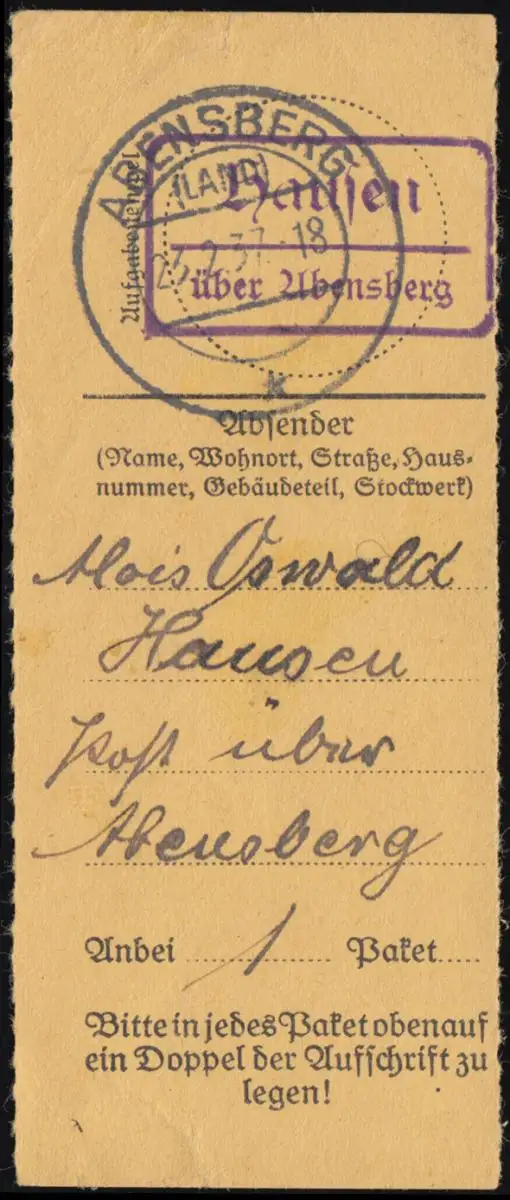 Aufgabestempel
ABENSBERG
(LAND)
23.2.37.-18
k
Hausen
über Abensberg
Absender
(Name, Wohnort, Straße, Haus-
nummer, Gebäudeteil, Stockwerk)
Alois Oswald
Hausen
Post über
Abensberg
Anbei 1 Paket
Bitte in jedes Paket obenauf
ein Doppel der Aufschrift zu
legen!